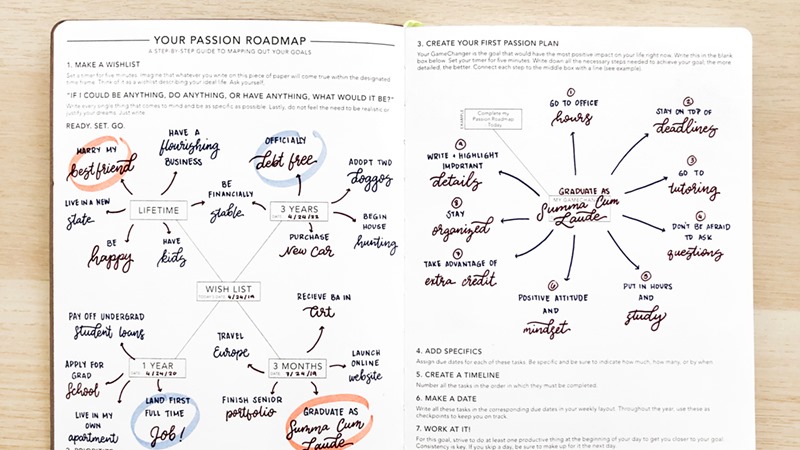 YOUR PASSION ROADMAP
A STEP-BY-STEP GUIDE TO MAPPING OUT YOUR GOALS
1. MAKE A WISHLIST
Set a timer for five minutes. Imagine that whatever you write on this piece of paper will come true within the designated
time frame. Think of it as a wishlist describing your ideal life. Ask yourself,
"IF I COULD BE ANYTHING, DO ANYTHING, OR HAVE ANYTHING, WHAT WOULD IT BE?"
Write every single thing that comes to mind and be as specific as possible. Lastly, do not feel the need to be realistic or
justify your dreams. Just write.
READY. SET. GO.
MARRY MY
best friend
HAVE A
flourishing
BUSINESS
OFFICIALLY
debt free
ADOPT TWO
doggos
LIVE IN A NEW
state
LIFETIME
BE
FINANCIALLY
stable
3 YEARS
DATE: 4/24/22
BEGIN
HOUSE
hunting
BE
happy
HAVE
kids
PURCHASE
New Car
WISH LIST
TODAY'S DATE: 4/24/19
PAY OFF UNDERGRAD
Student loans
RECIEVE BA IN
Art
TRAVEL
Europe
APPLY FOR
GRAD
School
1 YEAR
DATE: 4/24/20
3 MONTHS
DATE: 7/24/19
LAUNCH
ONLINE
website
LIVE IN MY
OWN
apartment
LAND FIRST
FULL TIME
Job!
FINISH SENIOR
portfolio
GRADUATE AS
Summa Cum
Laude
3. CREATE YOUR FIRST PASSION PLAN
Your GameChanger is the goal that would have the most positive impact on your life right now. Write this in the blank
box below. Set your timer for five minutes. Write down all the necessary steps needed to achieve your goal; the more
detailed, the better. Connect each step to the middle box with a line (see example).
EXAMPLE
Complete my
Passion Roadmap
Today
1
GO TO OFFICE
hours
2
STAY ON TOP OF
deadlines
WRITE + HIGHLIGHT
IMPORTANT
details
3
GO TO
tutoring
GRADUATE AS
MY GAMECHANGER
Summa Cum
Laude
STAY
organized
DON'T BE AFRAID
TO ASK
questions
TAKE ADVANTAGE OF
extra credit
POSITIVE ATTITUDE
AND
mindset
PUT IN HOURS
AND
study
4. ADD SPECIFICS
Assign due dates for each of these tasks. Be specific and be sure to indicate how much, how many, or by when.
5. CREATE A TIMELINE
Number all the tasks in the order in which they must be completed.
6. MAKE A DATE
Write all these tasks in the corresponding due dates in your weekly layout. Throughout the year, use these as
checkpoints to keep you on track.
7. WORK AT IT!
For this goal, strive to do at least one productive thing at the beginning of your day to get you closer to your goal.
Consistency is key. If you skip a day, be sure to make up for it the next day.